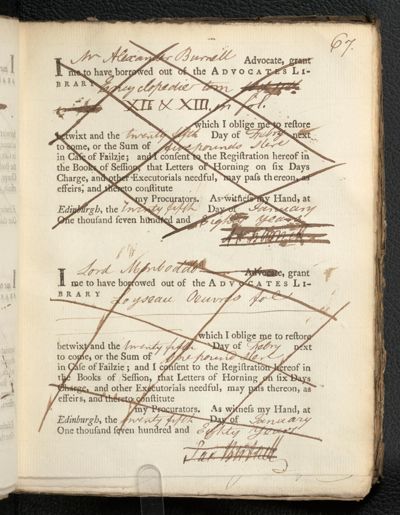 67.
Mr Alexander Burnett
I Advocate, grant
me to have borrowed out of the ADVOCATES LI-
BRARY Encyclopedie tom
XII & XIII, in fol.
which I oblige me to restore
betwixt and the twenty fifth Day of Febry next
to come, or the Sum of five pounds Sterl
in Case of Failzie; and I consent to the Registration hereof in
the Books of Session, that Letters of Horning on six Days
Charge, and other Executorials needful, may pass thereon, as
effeirs, and thereto constitute
my Procurators. As witness my Hand, at
Edinburgh, the twenty fifth Day of January
One thousand seven hundred and Eighty
Lord Monboddo
I Advocate, grant
me to have borrowed out of the ADVOCATES LI-
BRARY Loyseau Oeuvres fol.
which I oblige me to restore
betwixt and the twenty fifth Day of Febry next
to come, or the Sum of one pound Sterl
in Case of Failzie; and I consent to the Registration hereof in
the Books of Session, that Letters of Horning on six Days
Charge, and other Executorials needful, may pass thereon, as
effeirs, and thereto constitute
my Procurators. As witness my Hand, at
Edinburgh, the twenty fifth Day of January
One thousand seven hundred and Eighty